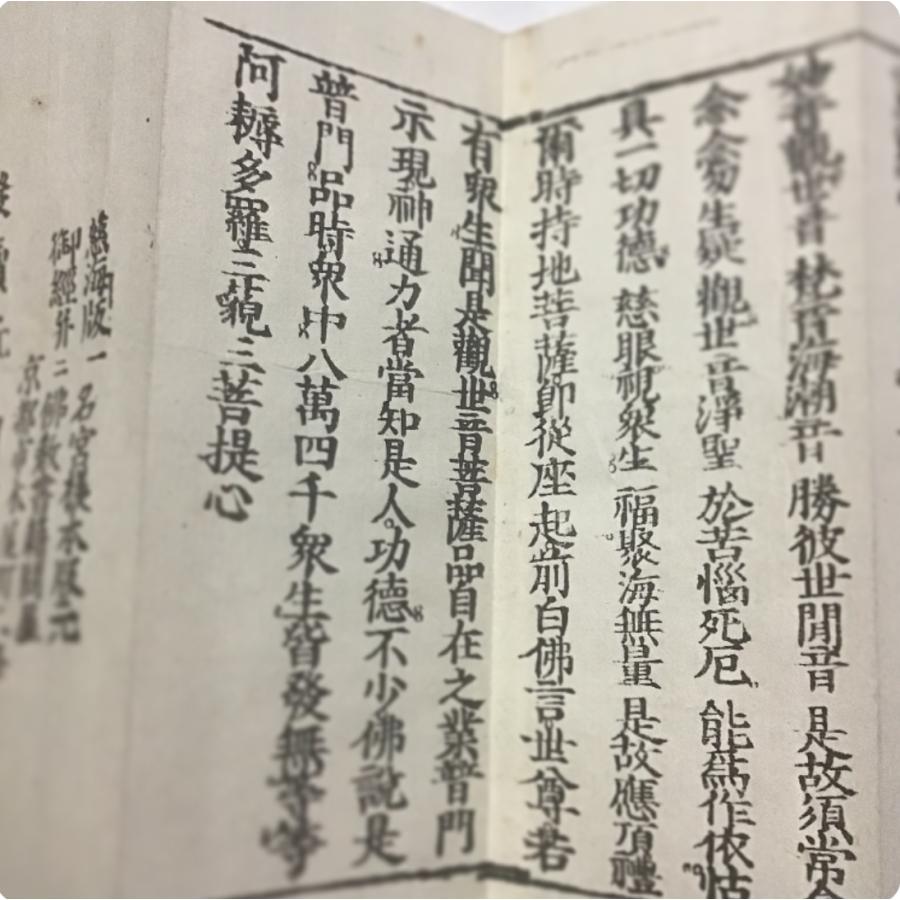 妙音觀世音　梵音海潮音　勝彼世間音　是故須常念
念念勿生疑　觀世音淨聖　於苦惱死厄　能爲作依怙
具一切功德　慈眼視衆生　福聚海無量　是故應頂禮
爾時持地菩薩卽從座起前白佛言世尊若
有衆生聞是觀世音菩薩品自在之業普門
示現神通力者當知是人功德不少佛說是
普門品時衆中八萬四千衆生皆發無等等
阿耨多羅三藐三菩提心
慈海版一
御經外二